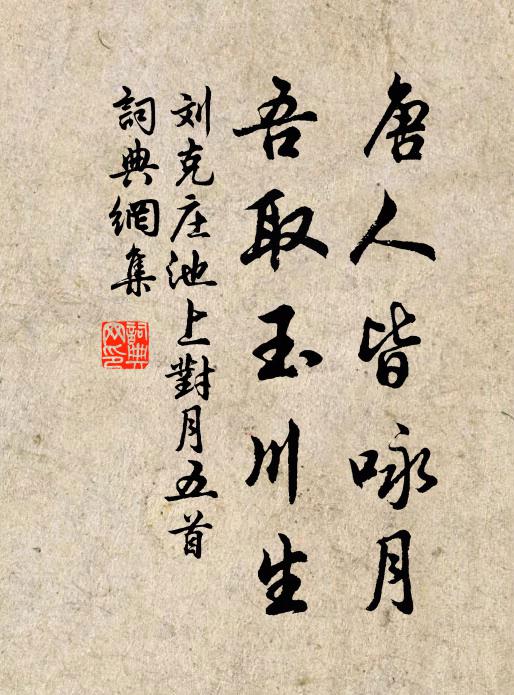 唐人皆咏月
吾取玉川生
刘克庄池上對月五首
詞典網集
詞典网印